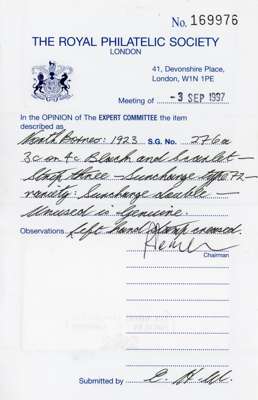 No. 169976
THE ROYAL PHILATELIC SOCIETY
LONDON
41, Devonshire Place,
London, W1N 1PE
Meeting of - 3 SEP 1997
In the OPINION of The EXPERT COMMITTEE the item
described as
North Borneo: 1923 S.G. No. 276a
3c on 4c Black and Scarlet -
Strip three - Surcharge type 72 -
variety: Surcharge double -
Unused is Genuine.
Observations Left hand stamp creased.
Chairman
Submitted by